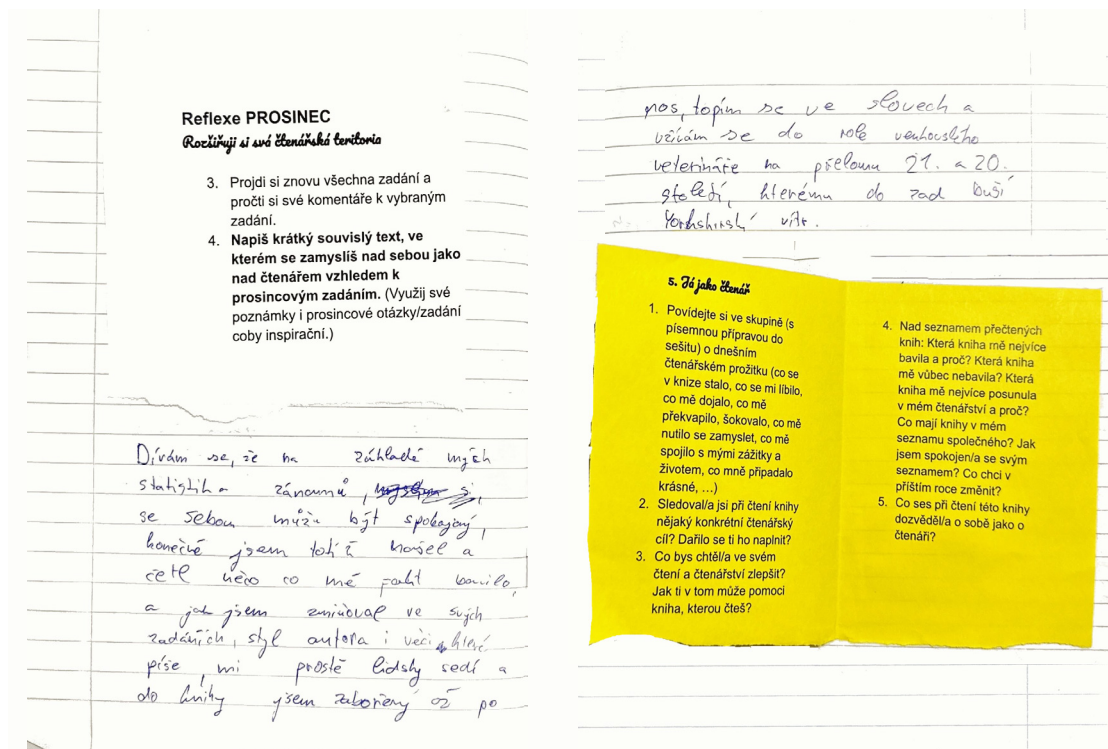 Reflexe PROSINEC
Rozšiřuji si svá čtenářská teritoria
3. Projdi si znovu všechna zadání a
pročti si své komentáře k vybraným
zadání.
4. Napiš krátký souvislý text, ve
kterém se zamyslíš nad sebou jako
nad čtenářem vzhledem k
prosincovým zadáním. (Využij své
poznámky i prosincové otázky/zadání
coby inspirační.)
Dívám se, že na základě mých
statistik a zánamů,
se sebou můžu být spokojený,
konečně jsem totiž našel a
četl něco co mě fakt bavilo,
a jak jsem zmiňoval ve svých
zadáních, styl autora i věci které
píše, mi prostě lidsky sedí a
do knihy jsem zabořený až po
nos, topím se ve slovech a
vžívám se do role venkovského
veterináře na přelomu 21. a 20.
století, kterému do zad buší
Yorkshirský vítr.
5. Já jako čtenář
1. Povídejte si ve skupině (s
písemnou přípravou do
sešitu) o dnešním
čtenářském prožitku (co se
v knize stalo, co se mi líbilo,
co mě dojalo, co mě
překvapilo, šokovalo, co mě
nutilo se zamyslet, co mě
spojilo s mými zážitky a
životem, co mně připadalo
krásné, ...)
2. Sledoval/a jsi při čtení knihy
nějaký konkrétní čtenářský
cíl? Dařilo se ti ho naplnit?
3. Co bys chtěl/a ve svém
čtení a čtenářství zlepšit?
Jak ti v tom může pomoci
kniha, kterou čteš?
4. Nad seznamem přečtených
knih: Která kniha mě nejvíce
bavila a proč? Která kniha
mě vůbec nebavila? Která
kniha mě nejvíce posunula
v mém čtenářství a proč?
Co mají knihy v mém
seznamu společného? Jak
jsem spokojen/a se svým
seznamem? Co chci v
příštím roce změnit?
5. Co ses při čtení této knihy
dozvěděl/a o sobě jako o
čtenáři?